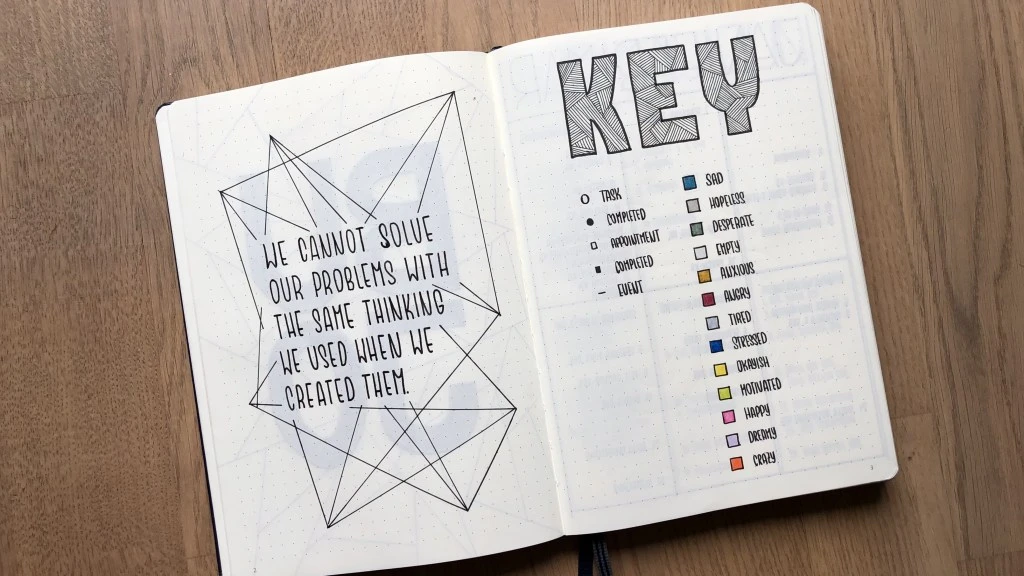 WE CANNOT SOLVE
OUR PROBLEMS WITH
THE SAME THINKING
WE USED WHEN WE
CREATED THEM.
KEY
TASK
COMPLETED
APPOINTMENT
COMPLETED
EVENT
SAD
HOPELESS
DESPERATE
EMPTY
ANXIOUS
ANGRY
TIRED
STRESSED
OKAYISH
MOTIVATED
HAPPY
DREAMY
CRAZY